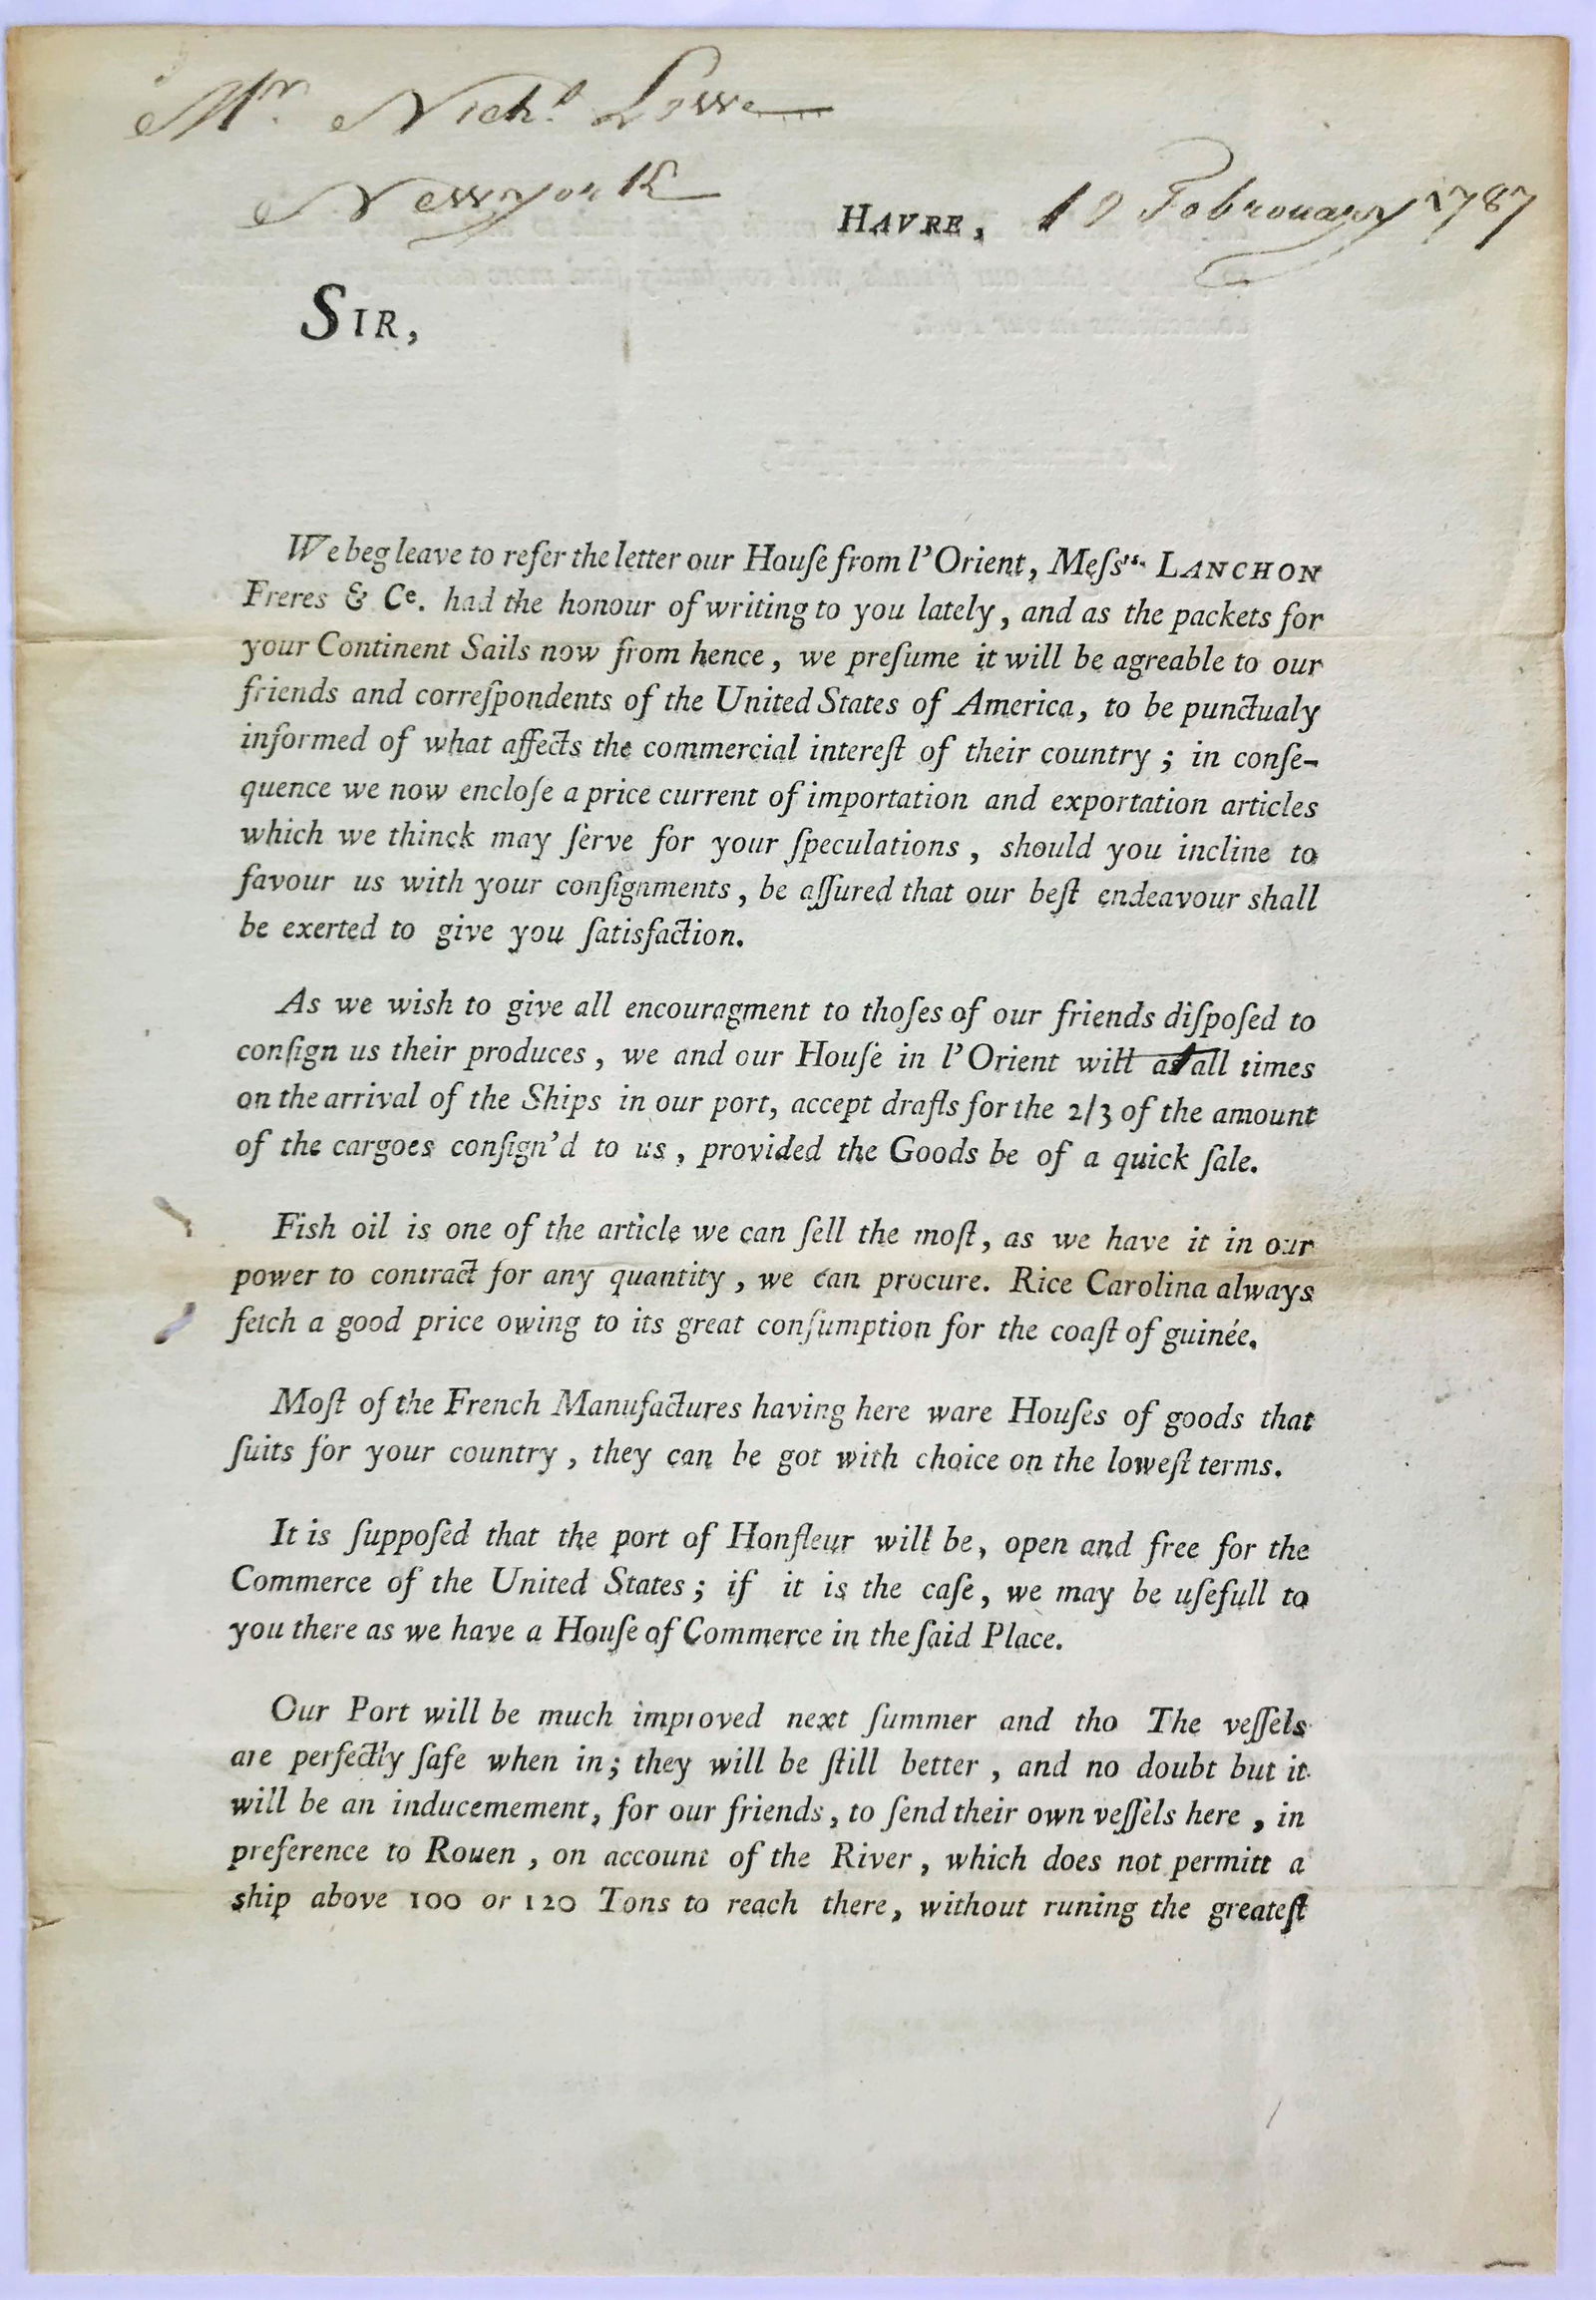 Mr. Nichl Lowe
Newyork
HAVRE, 10 Febrouary 1787
SIR,
We beg leave to refer the letter our Houſe from l'Orient, Meſsrs. LANCHON
Freres & Ce. had the honour of writing to you lately, and as the packets for
your Continent Sails now from hence, we preſume it will be agreable to our
friends and correſpondents of the United States of America, to be punctualy
informed of what affects the commercial intereſt of their country; in conſe-
quence we now encloſe a price current of importation and exportation articles
which we thinck may ſerve for your ſpeculations, should you incline to
favour us with your conſignments, be aſſured that our beſt endeavour shall
be exerted to give you ſatisfaction.
As we wish to give all encouragment to thoſes of our friends diſpoſed to
conſign us their produces, we and our Houſe in l'Orient will at all times
on the arrival of the Ships in our port, accept drafts for the 2/3 of the amount
of the cargoes conſign'd to us, provided the Goods be of a quick ſale.
Fish oil is one of the article we can ſell the moſt, as we have it in our
power to contract for any quantity, we can procure. Rice Carolina always
fetch a good price owing to its great conſumption for the coaſt of guinée.
Moſt of the French Manufactures having here ware Houſes of goods that
ſuits for your country, they can be got with choice on the loweſt terms.
It is ſuppoſed that the port of Honfleur will be, open and free for the
Commerce of the United States; if it is the caſe, we may be uſefull to
you there as we have a Houſe of Commerce in the ſaid Place.
Our Port will be much improved next ſummer and tho The veſſels
are perfectly ſafe when in; they will be ſtill better, and no doubt but it
will be an inducemement, for our friends, to ſend their own veſſels here, in
preference to Rouen, on account of the River, which does not permitt a
ship above 100 or 120 Tons to reach there, without runing the greateſt